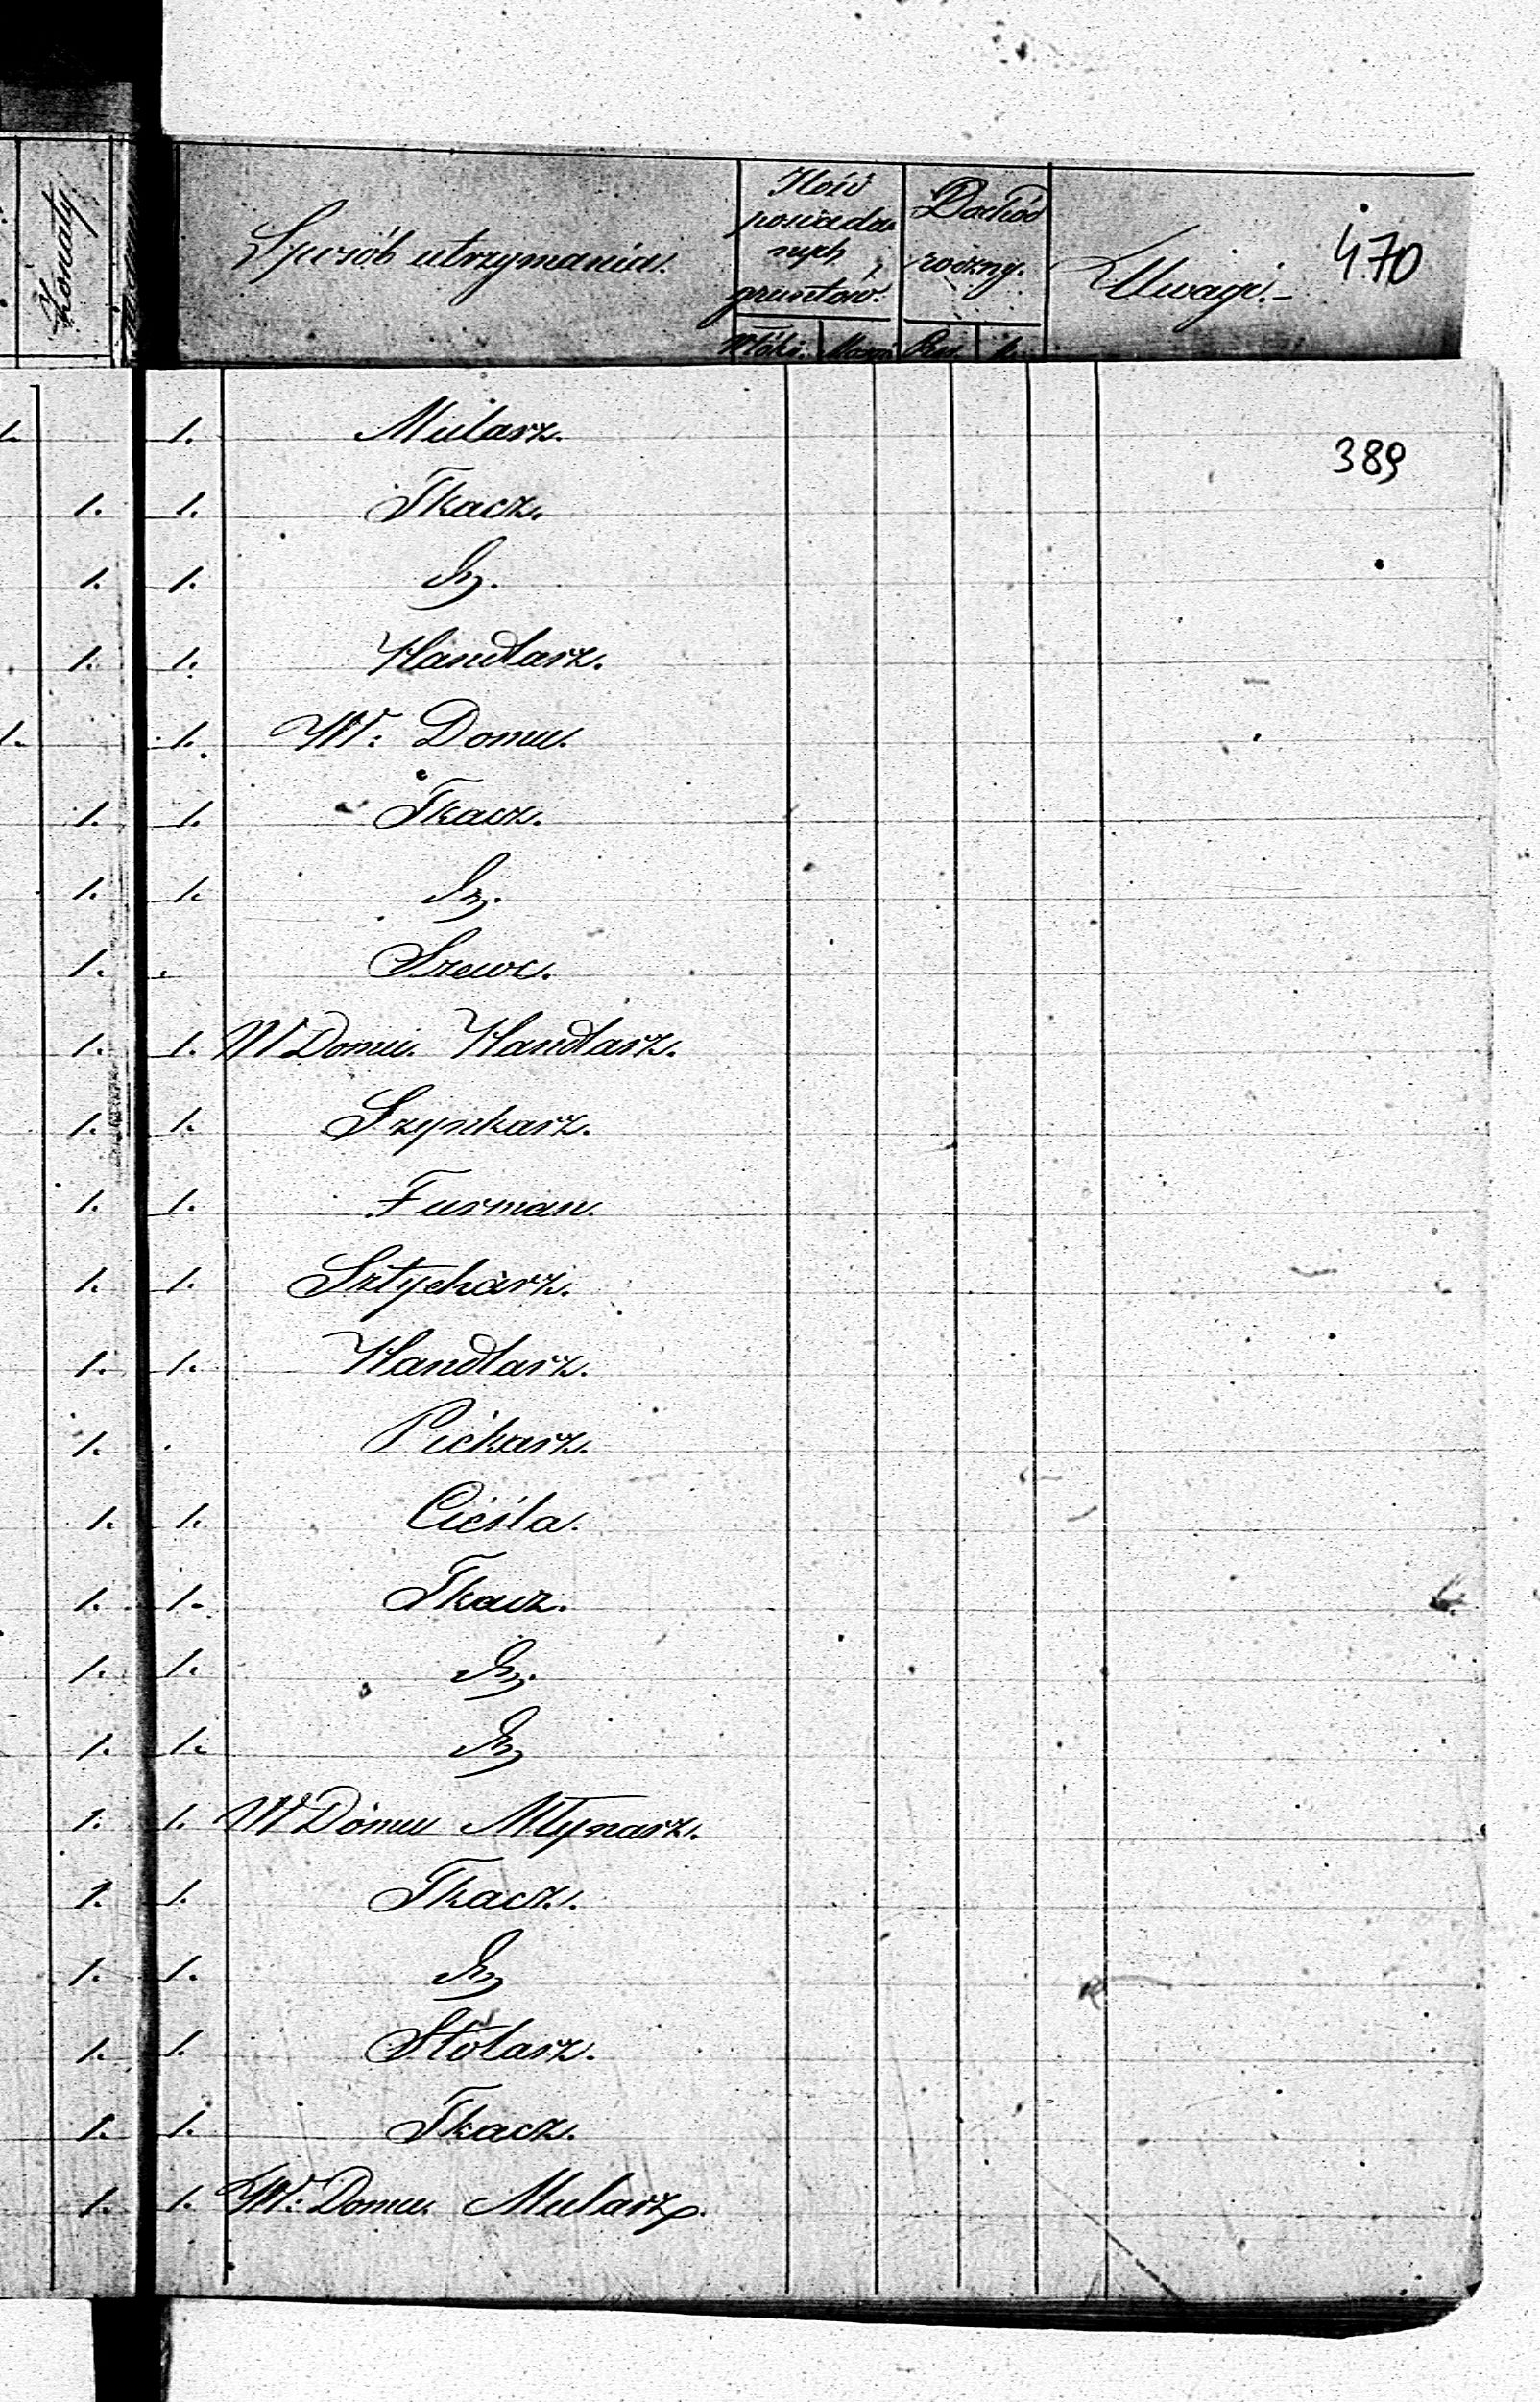 Żonaty
Sposób utrzymania.
Ilość
posiada
nych
gruntów.
Włóki. Morgi
Dochód
roczny.
Rs. k.
Uwagi.-
470
389
1. 1. Mularz.
1. 1. Tkacz.
1. 1.
1. 1. Handlarz.
1. 1. W: Domu.
1. 1. Tkacz.
1. 1.
1. Szewc.
1. 1. W Domu. Handlarz.
1. 1. Szynkarz.
1. 1. Furman.
1. 1. Sztycharz.
1. 1. Handlarz.
1. Piekarz.
1. 1. Cieśla.
1. 1. Tkacz.
1. 1.
1. 1.
1. 1. W Domu Młynarz.
1. 1. Tkacz.
1. 1.
1. 1. Stolarz.
1. 1. Tkacz.
1. 1. W: Domu. Mularz.